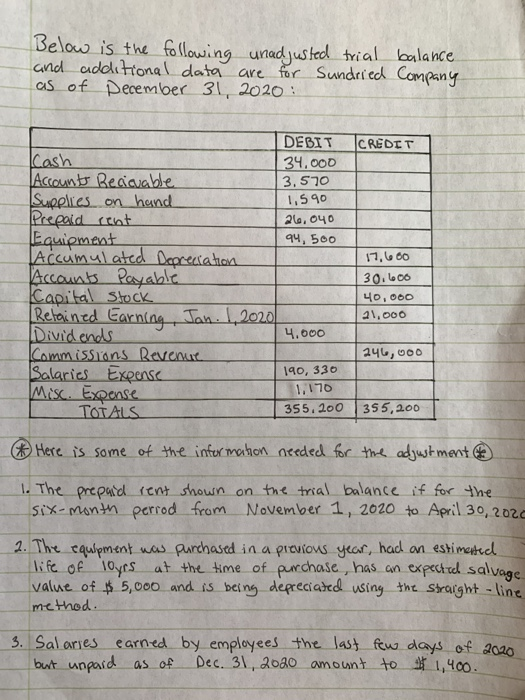 Below is the following unadjusted trial balance
and additional data are for Sundried Company
as of December 31, 2020:
DEBIT CREDIT
Cash 34,000
Accounts Recievable 3,570
Supplies on hand 1,590
Prepaid rent 26,040
Equipment 94,500
Accumulated Depreciation 17,600
Accounts Payable 30,600
Capital Stock 40,000
Retained Earning, Jan. 1, 2020 21,000
Dividends 4,000
Commissions Revenue 246,000
Salaries Expense 190,330
Misc. Expense 1,170
TOTALS 355,200 355,200
* Here is some of the information needed for the adjustment *
1. The prepaid rent shown on the trial balance if for the
six-month period from November 1, 2020 to April 30, 2020
2. The equipment was purchased in a previous year, had an estimated
life of 10yrs at the time of purchase, has an expected salvage
value of $5,000 and is being depreciated using the straight-line
method.
3. Salaries earned by employees the last few days of 2020
but unpaid as of Dec. 31, 2020 amount to $1,400.